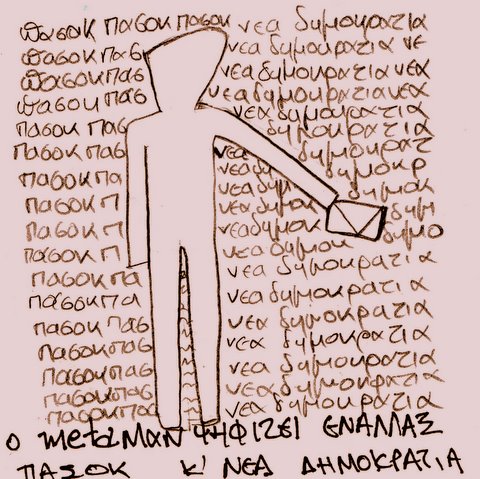 πασοκ πασοκ πασοκ νεα δημοκρατια
πασοκ πας νεα δημοκρατια νε
πασοκ πας νεα δημοκρατια νεα
πασοκ πας νεα δημοκρατια νεα
πασοκ πας νεα δημοκρατια
πασοκ πας δημοκρατια
πασοκ πας νεα δημοκρατ
πασοκ πας νεα δημοκρ
πασοκ π νεα δημ δημοκ
πασοκ π νεα δημοκ δημ
πασοκ π νεα δημοκ δημο
πασοκ π νεα δημοκ
πασοκ πα νεα δημοκρατια
πασοκ πα νεα δημοκρατια
πασοκ πας νεα δημοκρατια
πασοκ πας νεα δημοκρατια
πασοκ πας νεα δημοκρατια
πασοκ πας νεα δημοκρατια
πασοκ πας νεα δημοκρατια
Ο metaMAN ΨΗΦΙΖΕΙ ΕΝΑΛΛΑΞ
ΠΑΣΟΚ Κ' ΝΕΑ ΔΗΜΟΚΡΑΤΙΑ